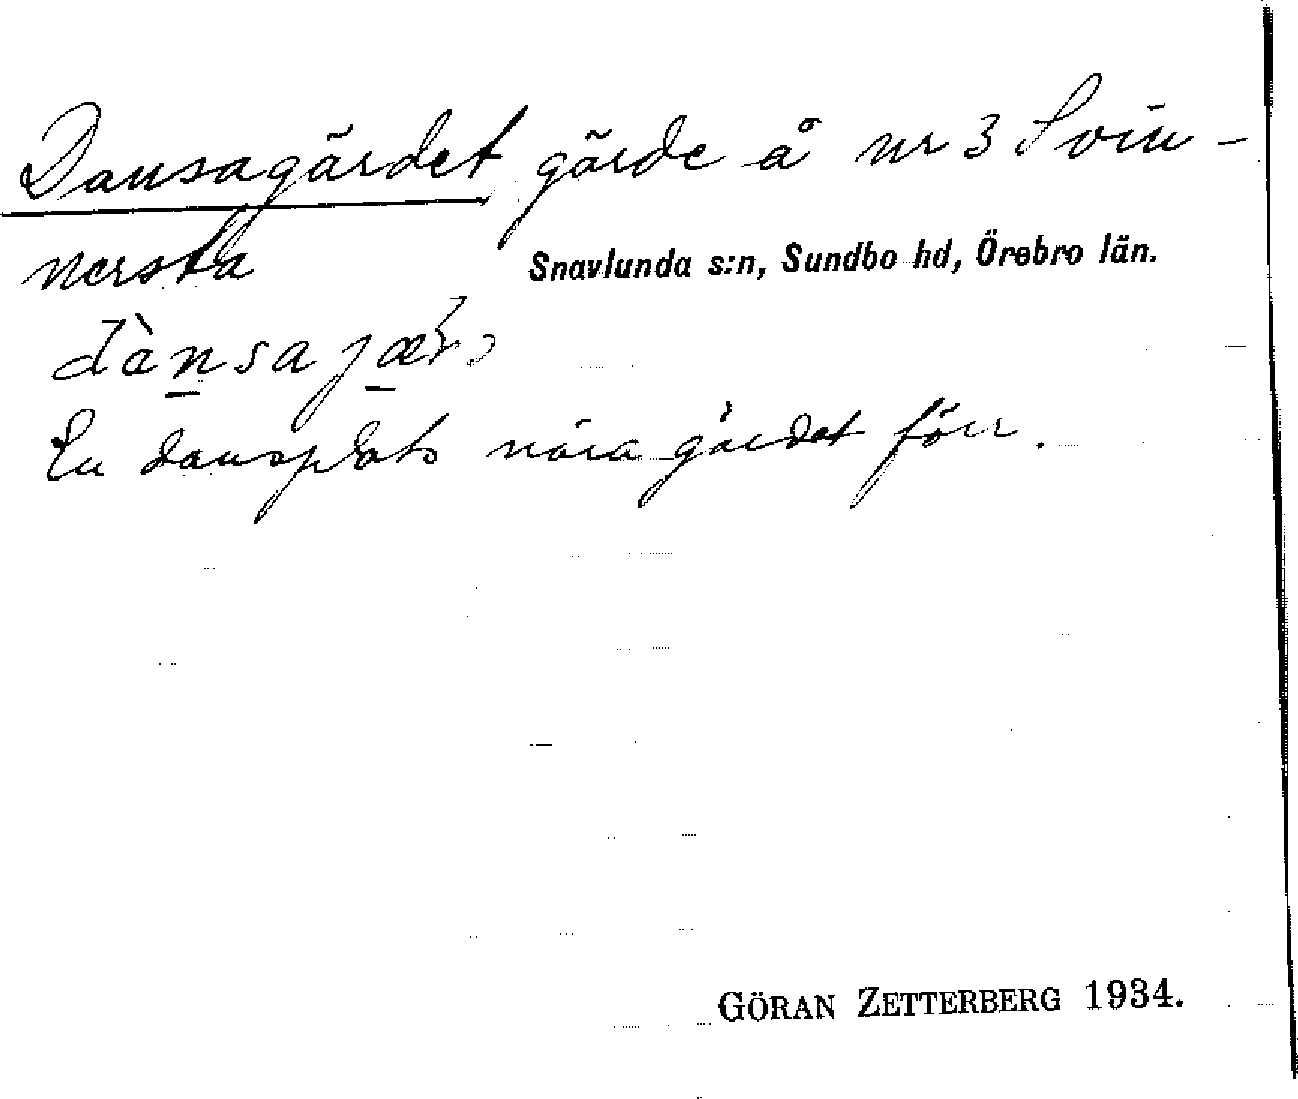 Dansagärdet gärde å nr 3 Svin-
nersta
Snavlunda s:n, Sundbo hd, Örebro län.
dànsajær
En dansplats nära gärdet förr.
GÖRAN ZETTERBERG 1934.